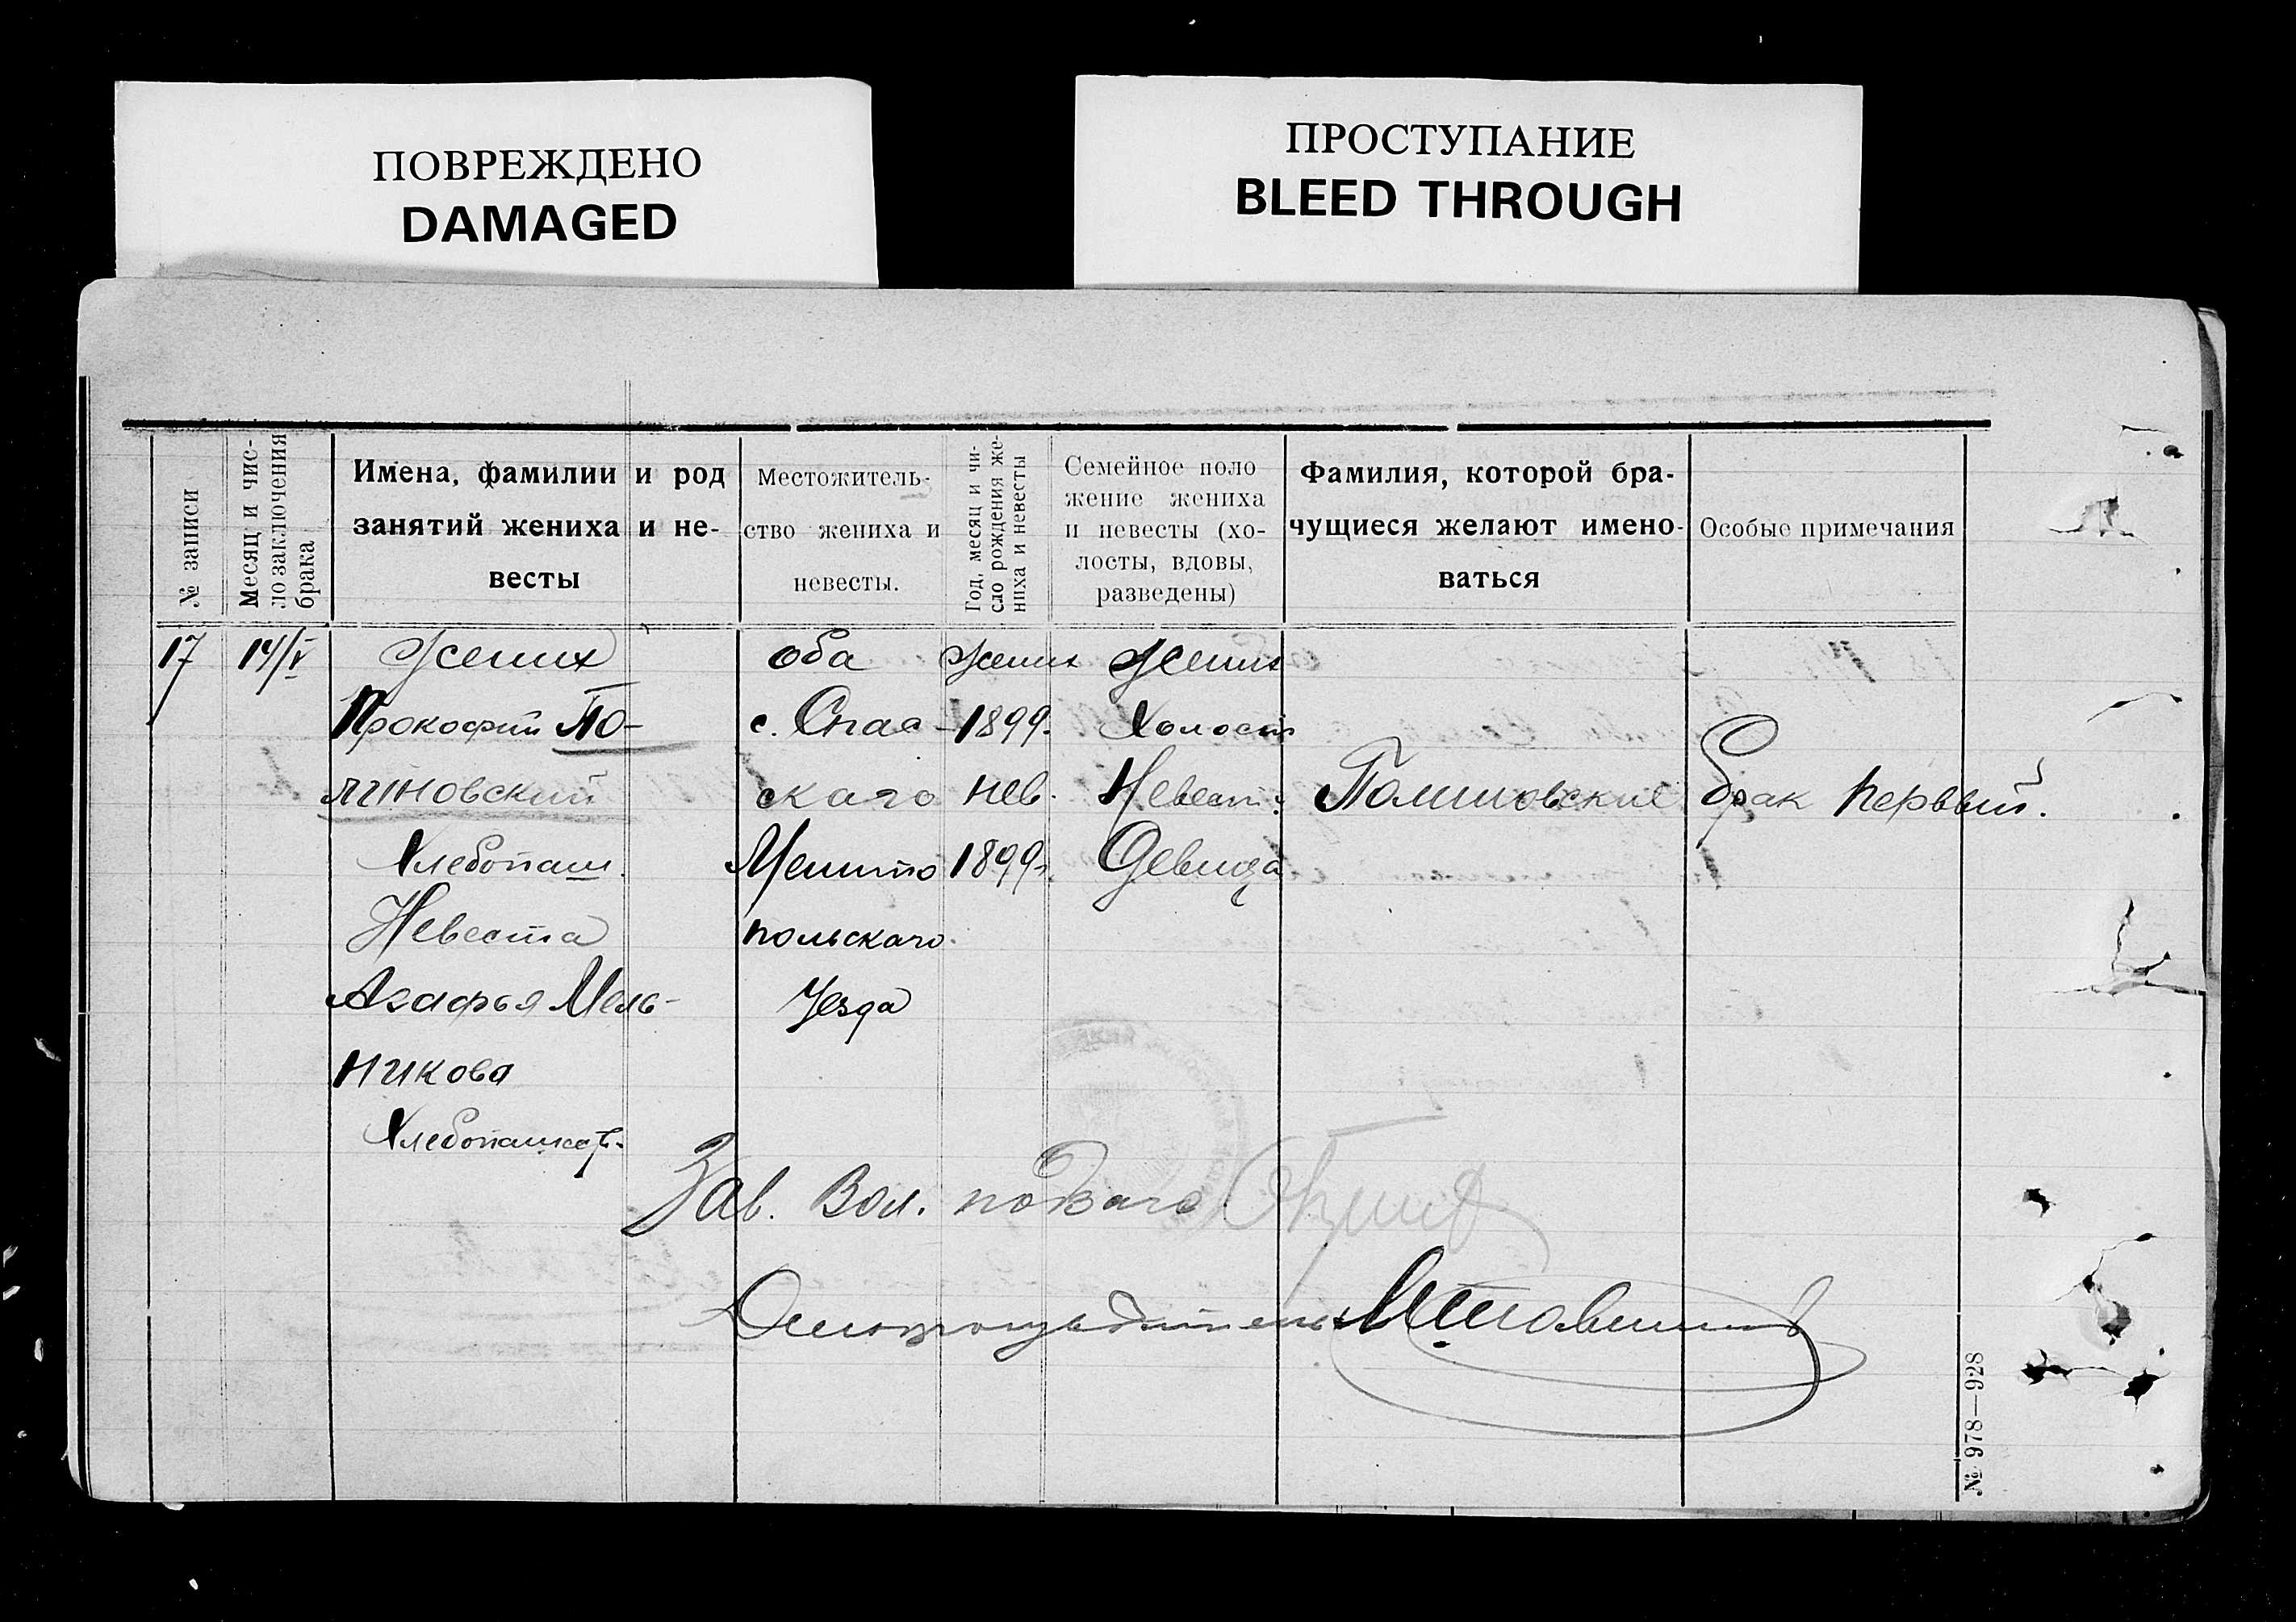 ПОВРЕЖДЕНО
DAMAGED
ПРОСТУПАНИЕ
BLEED THROUGH
№ записи
Месяц и чис-
ло заключения
брака
Имена, фамилии и род
занятий жениха и не-
весты
Местожитель-
ство жениха и
невесты.
Год, месяц и чи-
сло рождения же-
ниха и невесты
Семейное поло
жение жениха
и невесты (хо-
лосты, вдовы,
разведены)
Фамилия, которой бра-
чущиеся желают имено-
ваться
Особые примечания
17
14/V
Жених
Прокофий По-
Хлебопаш.
Невеста
Агафья Мель-
никова
оба
с. Спас-
скаго
Мелито
польскаго
Уезда
Жених
1899.
нев.
1899г.
Жених
Холост
Невест:
Девица
Брак первый.
Зав. Вол. подзагс
Делопроизводитель
№ 978—928